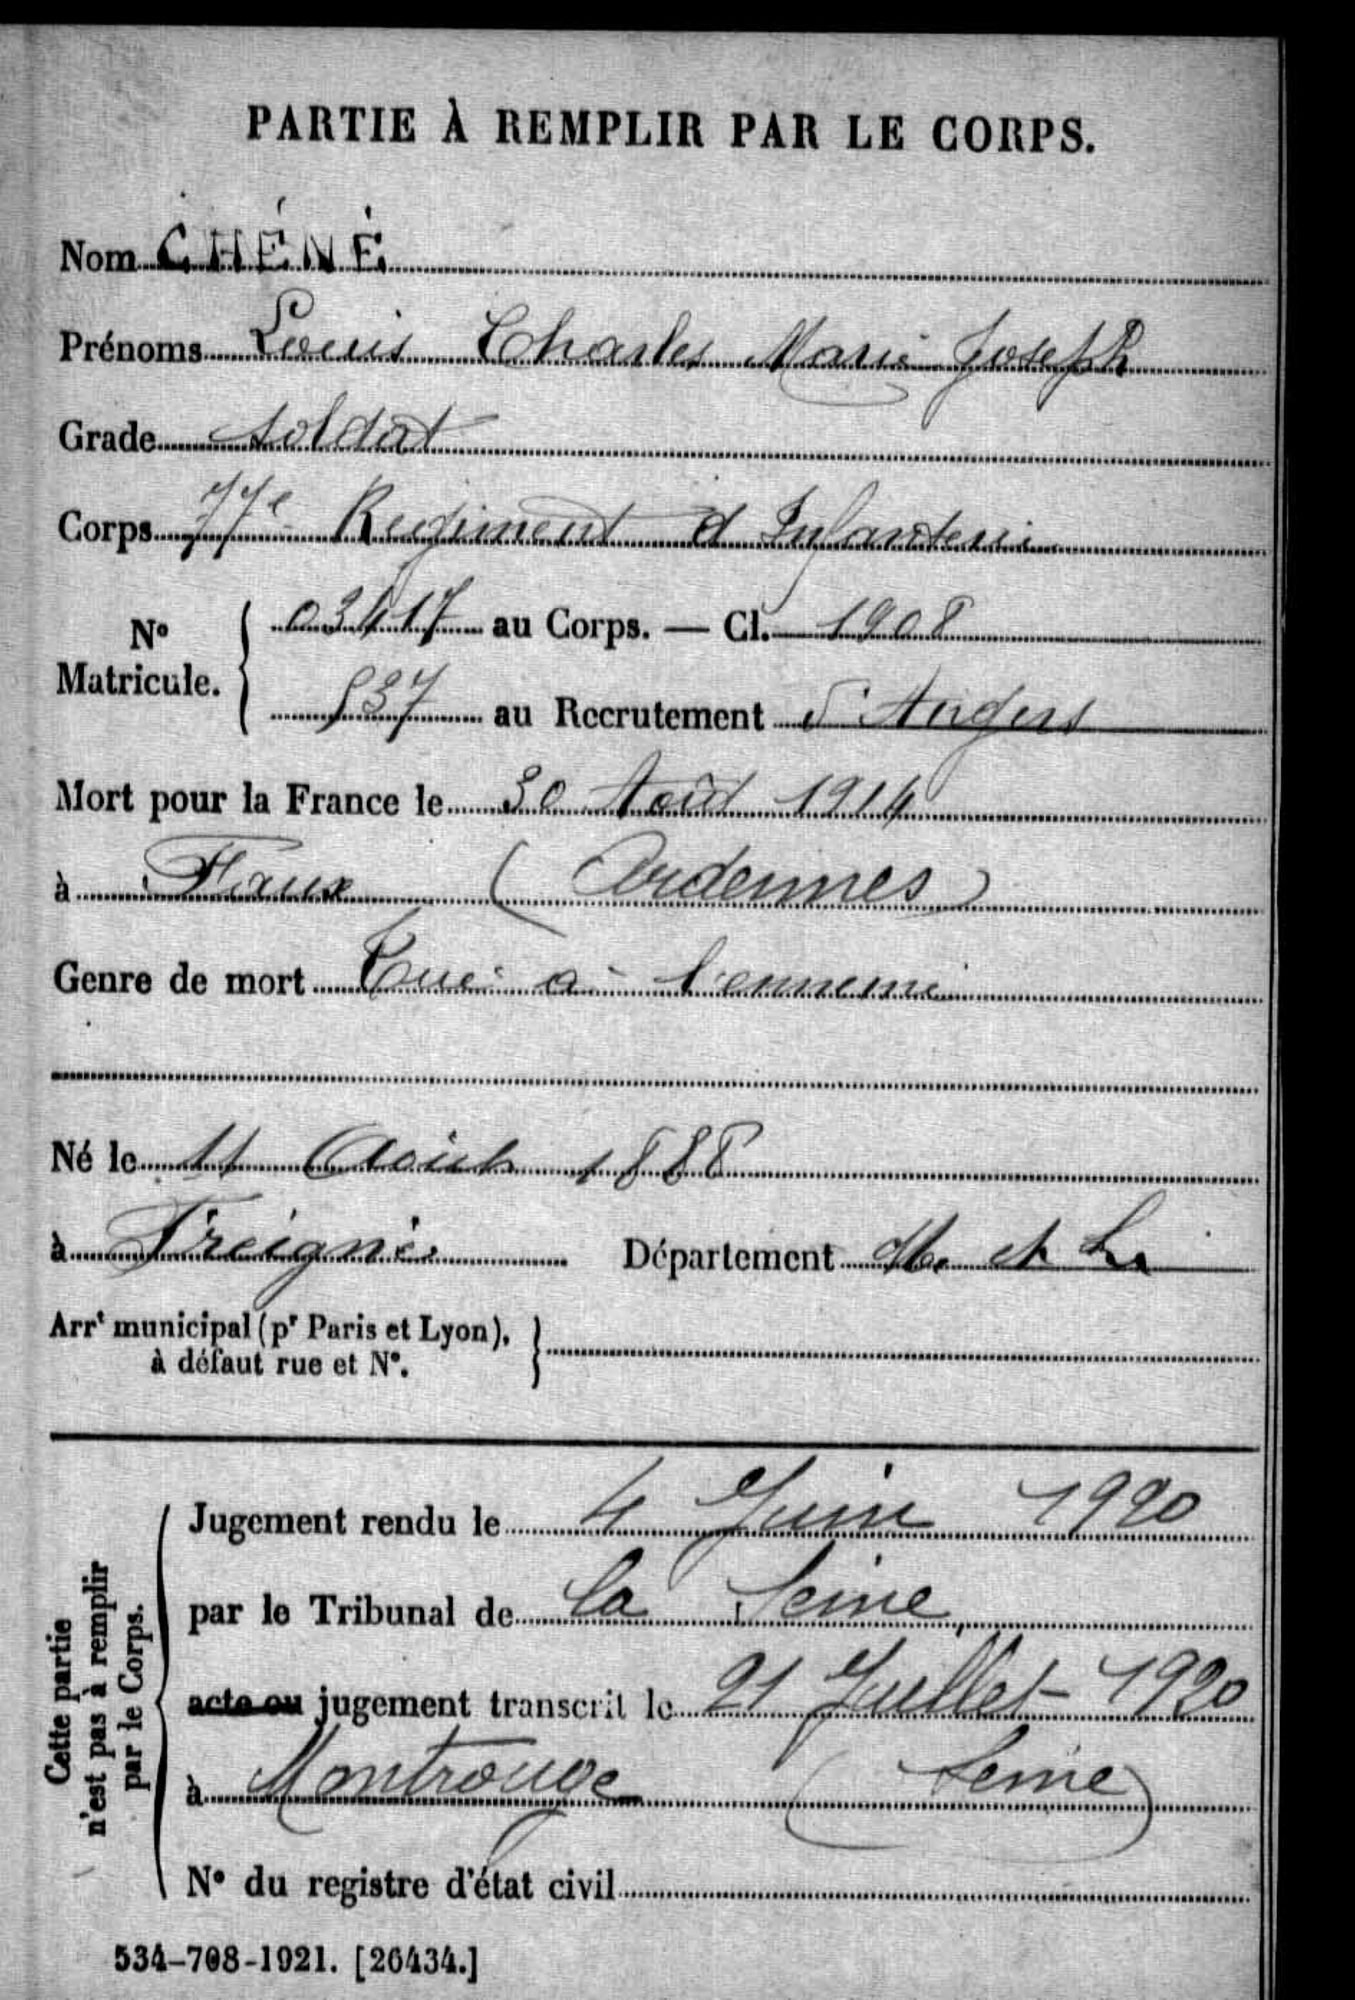 PARTIE À REMPLIR PAR LE CORPS.
Nom CHÉNÉ
Prénoms Louis Charles Marie Joseph
Grade soldat
Corps 77e Regiment d'Infanterie
No Matricule. 03417 au Corps. — Cl. 1908
537 au Recrutement d'Angers
Mort pour la France le 30 Août 1914
à Faux (Ardennes)
Genre de mort Tué à l'ennemi
Né le 11 Août 1888
à Freigné Département M. et L.
Arrt municipal (pr Paris et Lyon), à défaut rue et No.
Cette partie n'est pas à remplir par le Corps.
Jugement rendu le 4 Juin 1920
par le Tribunal de la Seine
acte ou jugement transcrit le 21 Juillet 1920
à Montrouge (Seine)
No du registre d'état civil
534-708-1921. [26434.]